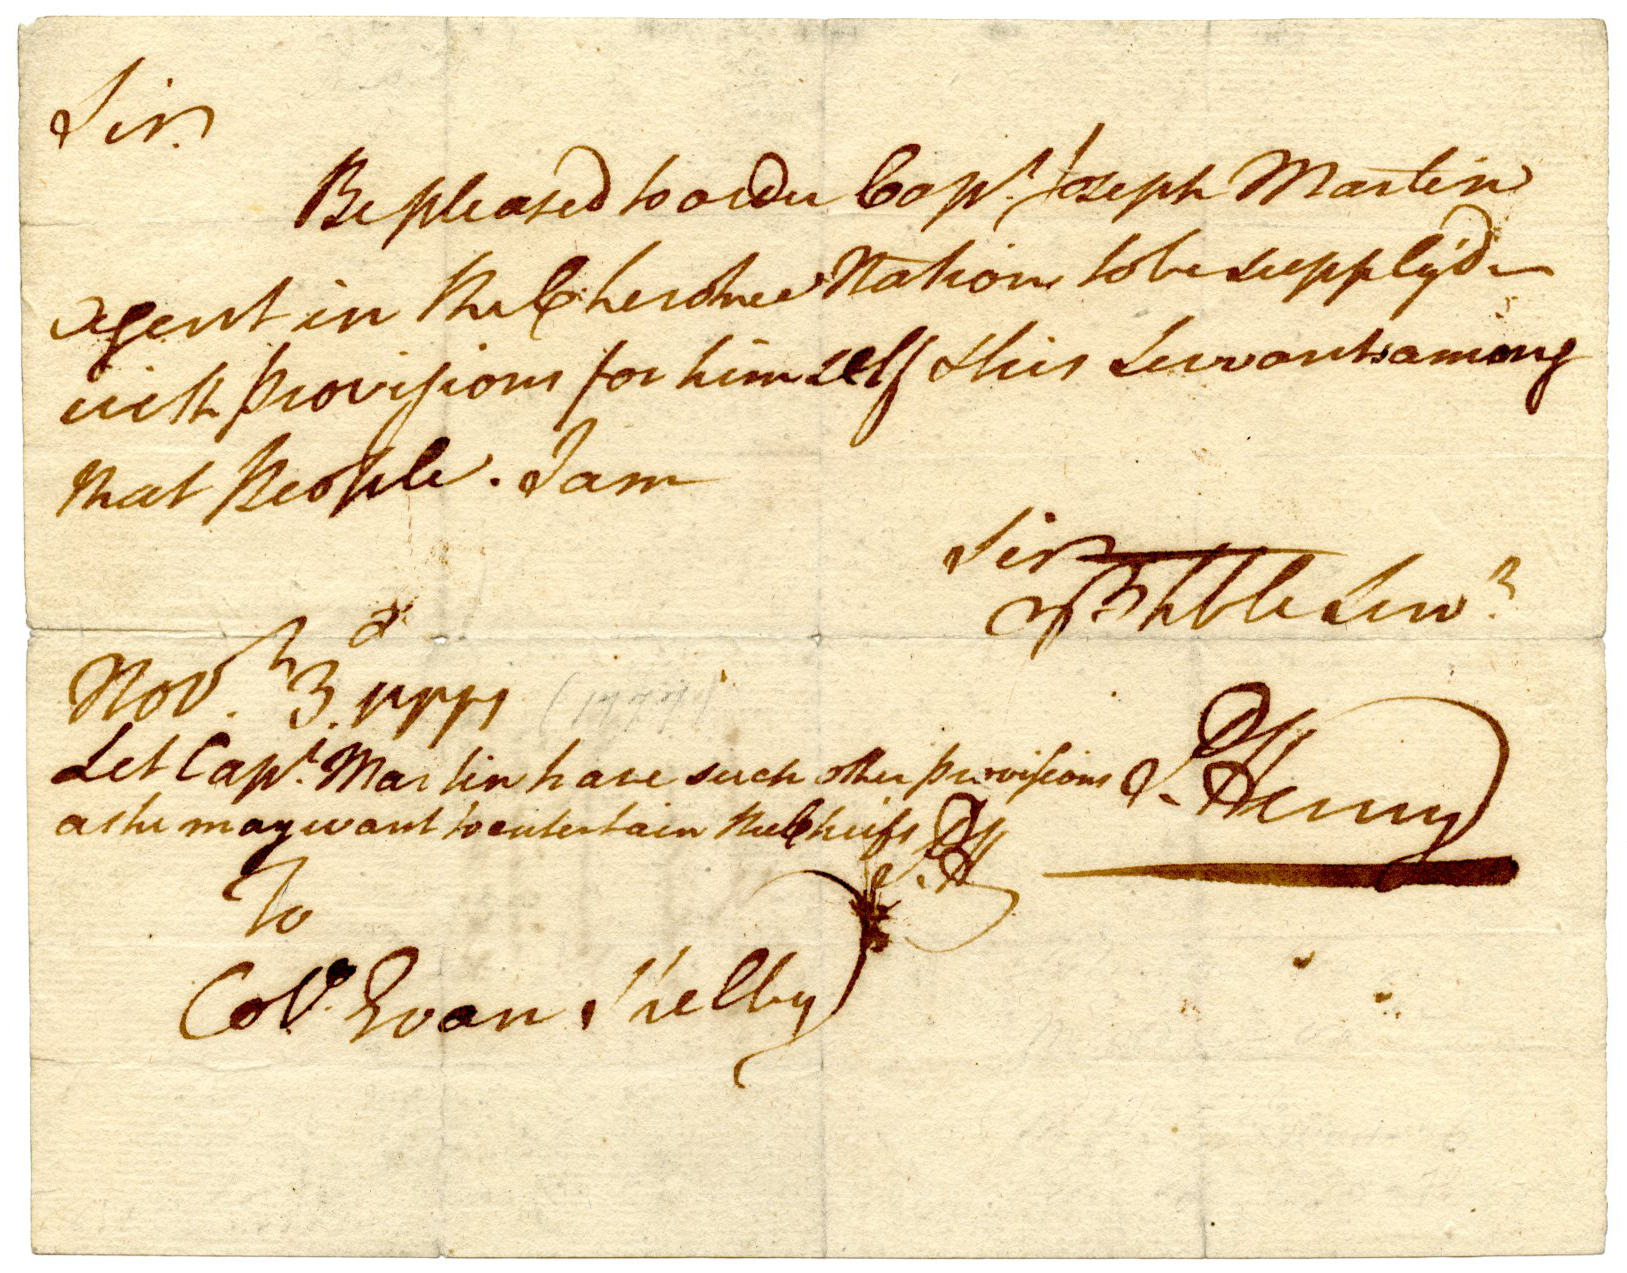 Sir.
Be pleased to order Capt. Joseph Martin
agent in the Cherokee Nation to be supply'd
with provisions for himself & his Servants among
that People. I am
Sir
Yr. Hble Servt.
Novr. 3d. 1777 (1777)
P. Henry
Let Capt. Martin have such other provisions
as he may want to entertain the Chiefs P. H
To
Colo. Evan Shelby